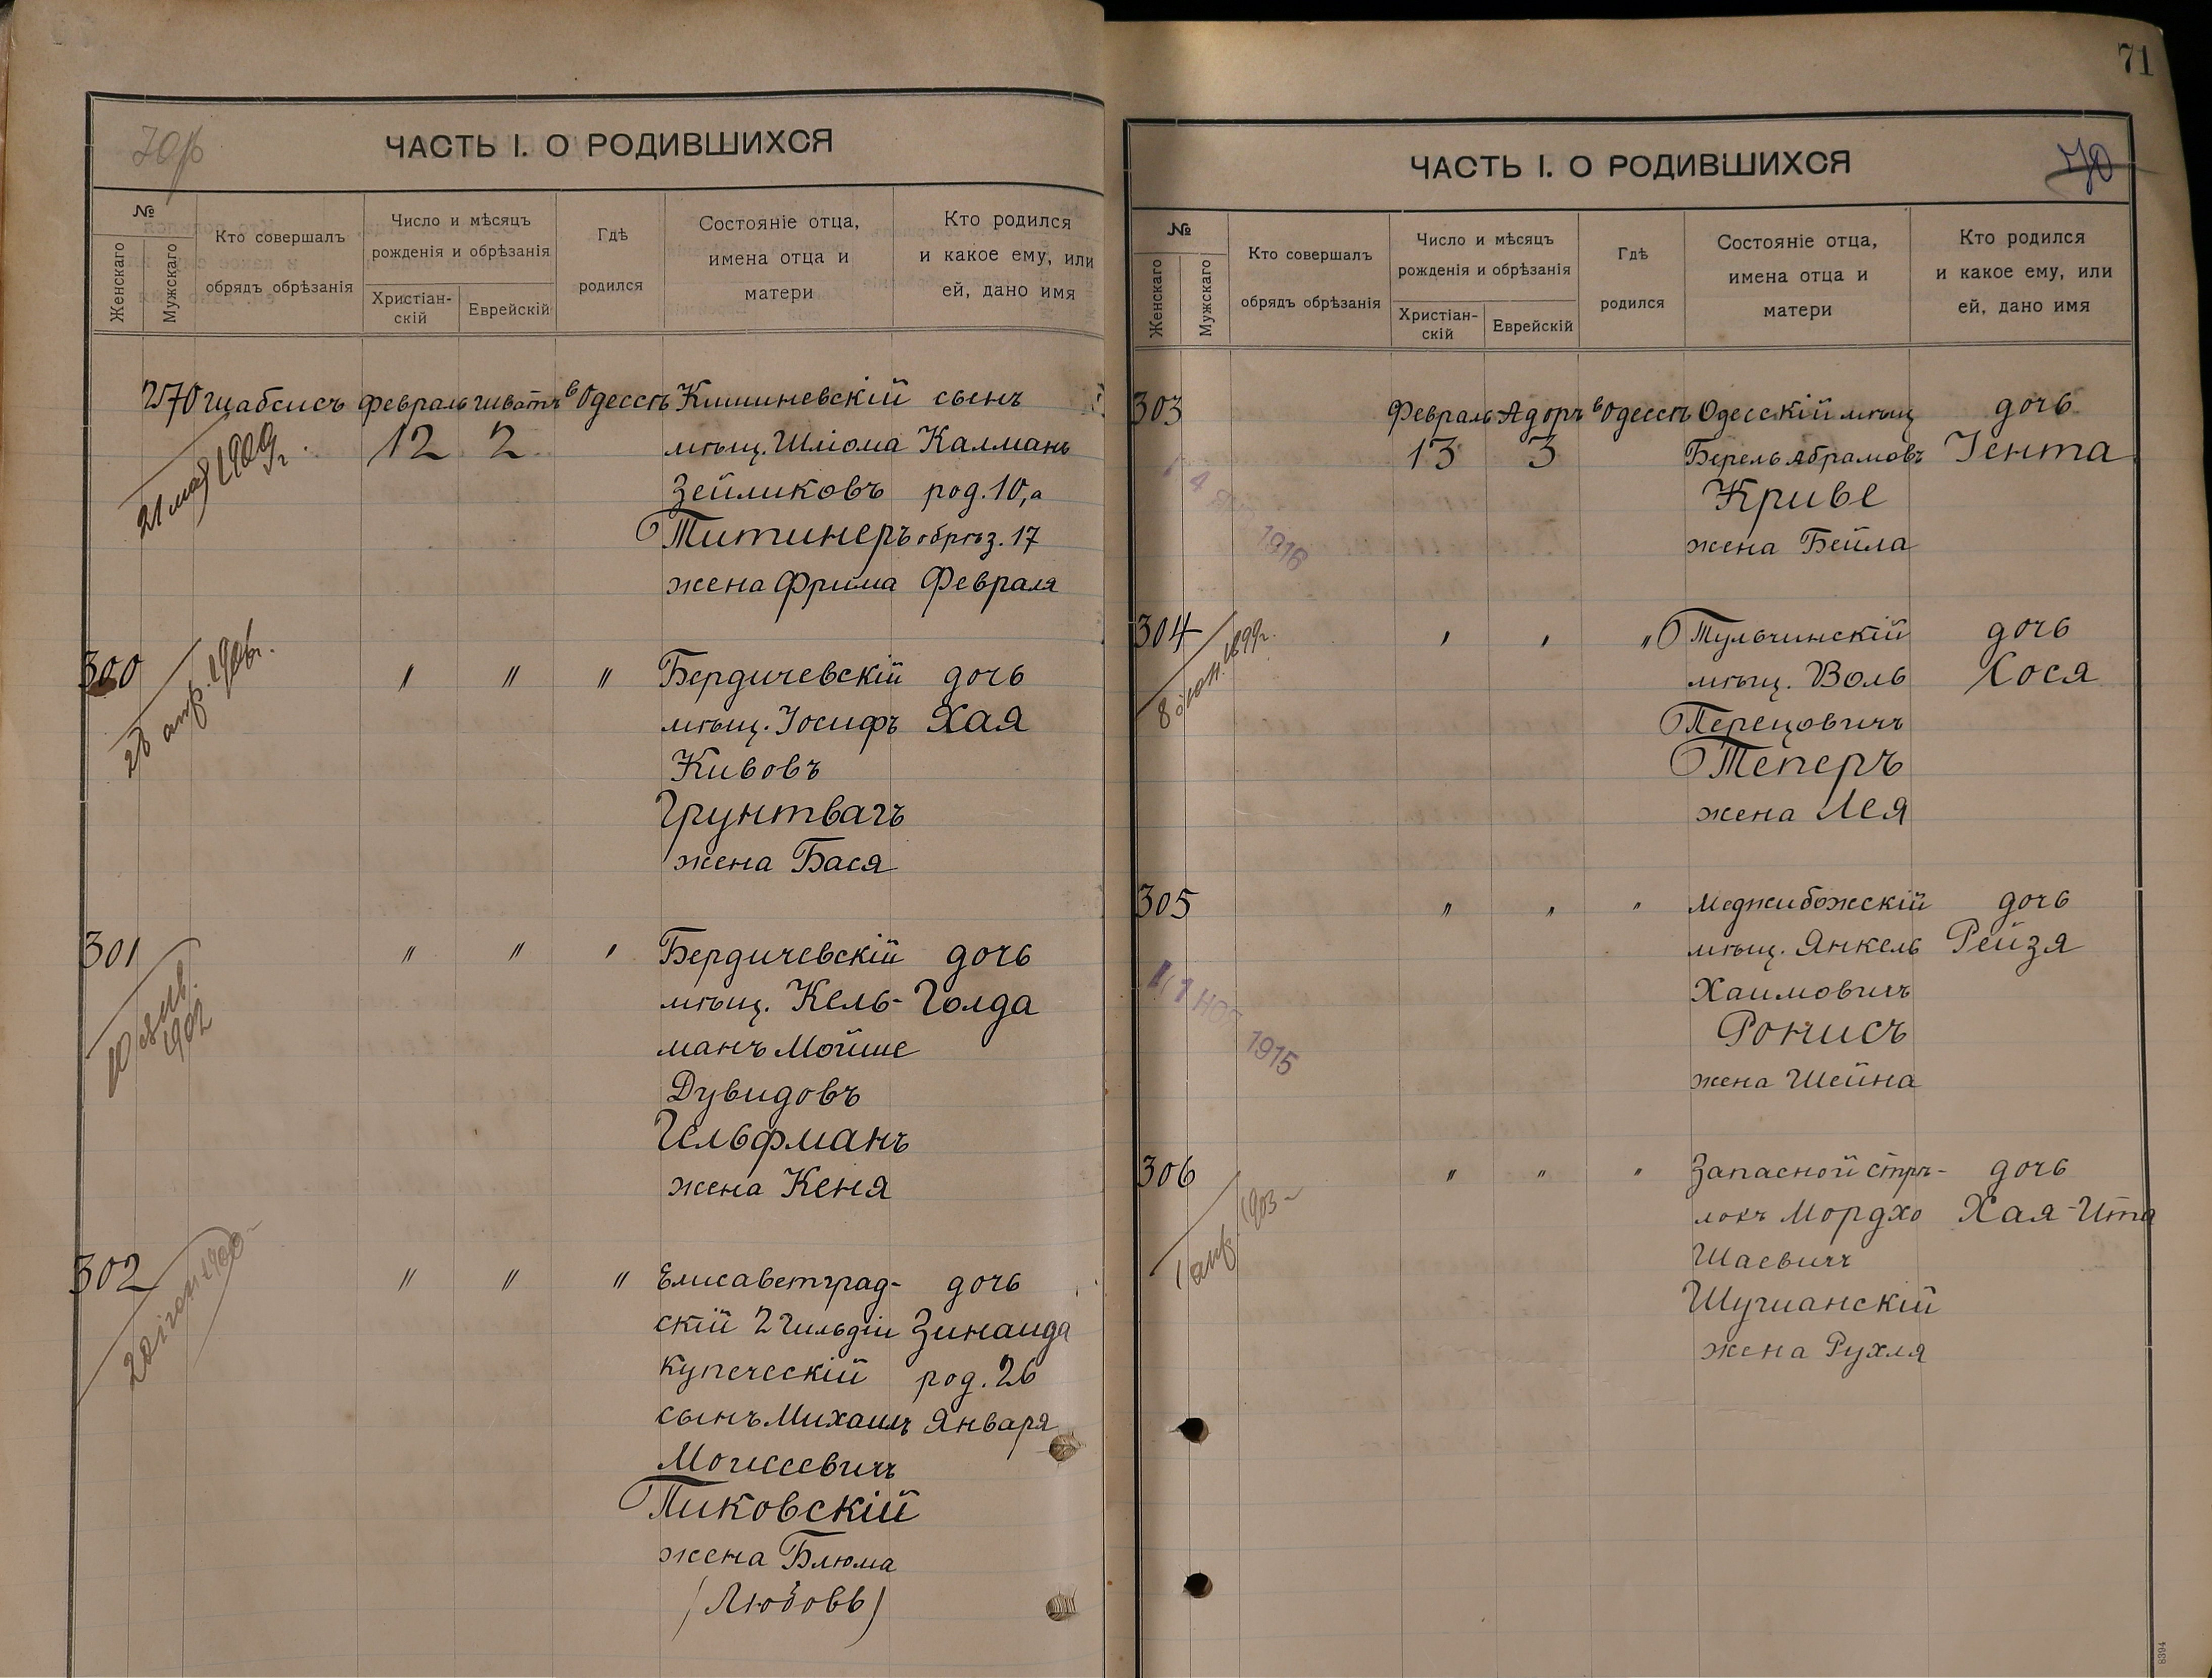 70об
ЧАСТЬ I. О РОДИВШИХСЯ
№
Женскаго
Мужскаго
Кто совершалъ
обрядъ обрѣзанія
Число и мѣсяцъ
рожденія и обрѣзанія
Христіан-
скій
Еврейскій
Гдѣ
родился
Состояніе отца,
имена отца и
матери
Кто родился
и какое ему, или
ей, дано имя
270 февраль въ Одессѣ Кишиневскій сынъ
21 мая 1909 г.
12 2 мѣщ. Шліома Калманъ
Зейликовъ род. 10, а
Титинеръ обрѣз. 17
жена Фрима Февраля
300 " " " Бердичевскій дочь
28 апр. 1906 г.
мѣщ. Іосифъ Хая
Кивовъ
Грунтвагъ
жена Бася
301 " " " Бердичевскій дочь
1902
мѣщ. Кель- Голда
манъ Мойше
Дувидовъ
Гельфманъ
жена Кеня
302 " " " Елисаветград- дочь
скій 2 гильдіи Зинаида
купеческій род. 26
сынъ Михаилъ Января
Моисеевичъ
Пиковскій
жена Блюма
(Любовь)
71
ЧАСТЬ I. О РОДИВШИХСЯ
70
№
Женскаго
Мужскаго
Кто совершалъ
обрядъ обрѣзанія
Число и мѣсяцъ
рожденія и обрѣзанія
Христіан-
скій
Еврейскій
Гдѣ
родился
Состояніе отца,
имена отца и
матери
Кто родился
и какое ему, или
ей, дано имя
303 Февраль Адоръ въ Одессѣ Одесскій мѣщ дочь
13 3 Берель Абрамовъ Іента
Криве
1916
жена Бейла
304 " " " Тульчинскій дочь
1899 г.
мѣщ. Воль Хося
Перецовичъ
Теперъ
жена Лея
305 " " " Меджибожскій дочь
мѣщ. Янкель Рейзя
Хаимовичъ
НОЯ 1915
Ронисъ
жена Шейна
306 " " " Запасной стрѣ- дочь
1 апр. 1903
локъ Мордхо Хая-Ита
Шаевичъ
Шучианскій
жена Рухля
8394